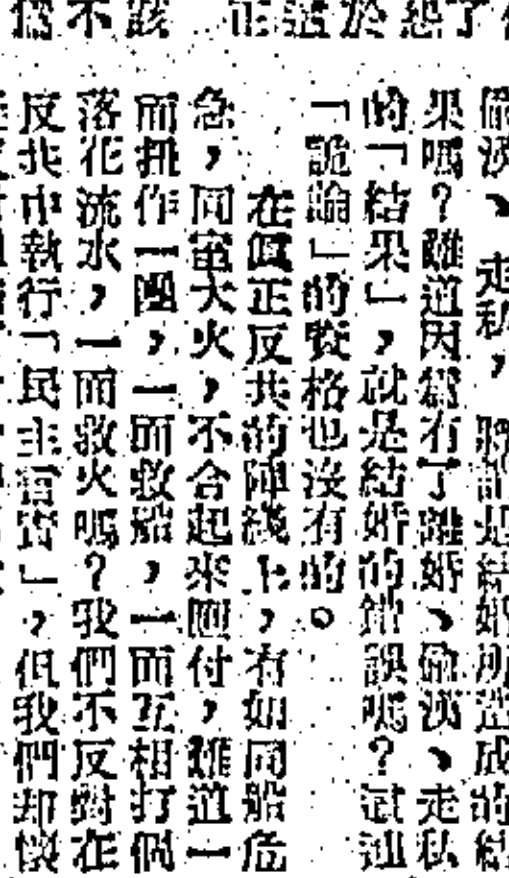 偷漢、走私，將說是結婚所造成的結
果嗎？難道因為有了離婚、偷漢、走私
的「結果」，就是結婚的錯誤嗎？試連
「詭論」的資格也沒有的。
在真正反共的陣綫上，有如同船危
急，同室大火，不合起來應付，難道一
面扭作一團，一面救船，一面互相打個
落花流水，一面救火嗎？我們不反對在
反共中執行「民主官實」，但我們却懷